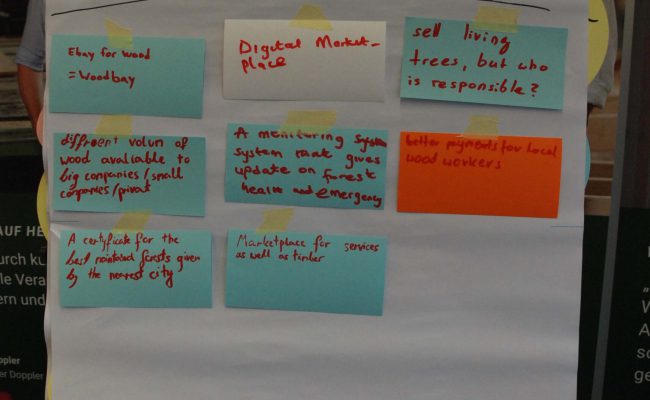 Ebay for wood
= Woodbay
Digital Market-
place
sell living
trees, but who
is responsible?
diffrent volum of
wood avaliable to
big companies/small
companies/privat
A monitoring system
system that gives
update on forest
health and emergency
better payments for local
wood workers
A certificate for the
best maintained forests given
by the nearest city
Marketplace for services
as well as timber
AUF HE
urch kü
le Vera
ern und
oppler
er Doppler